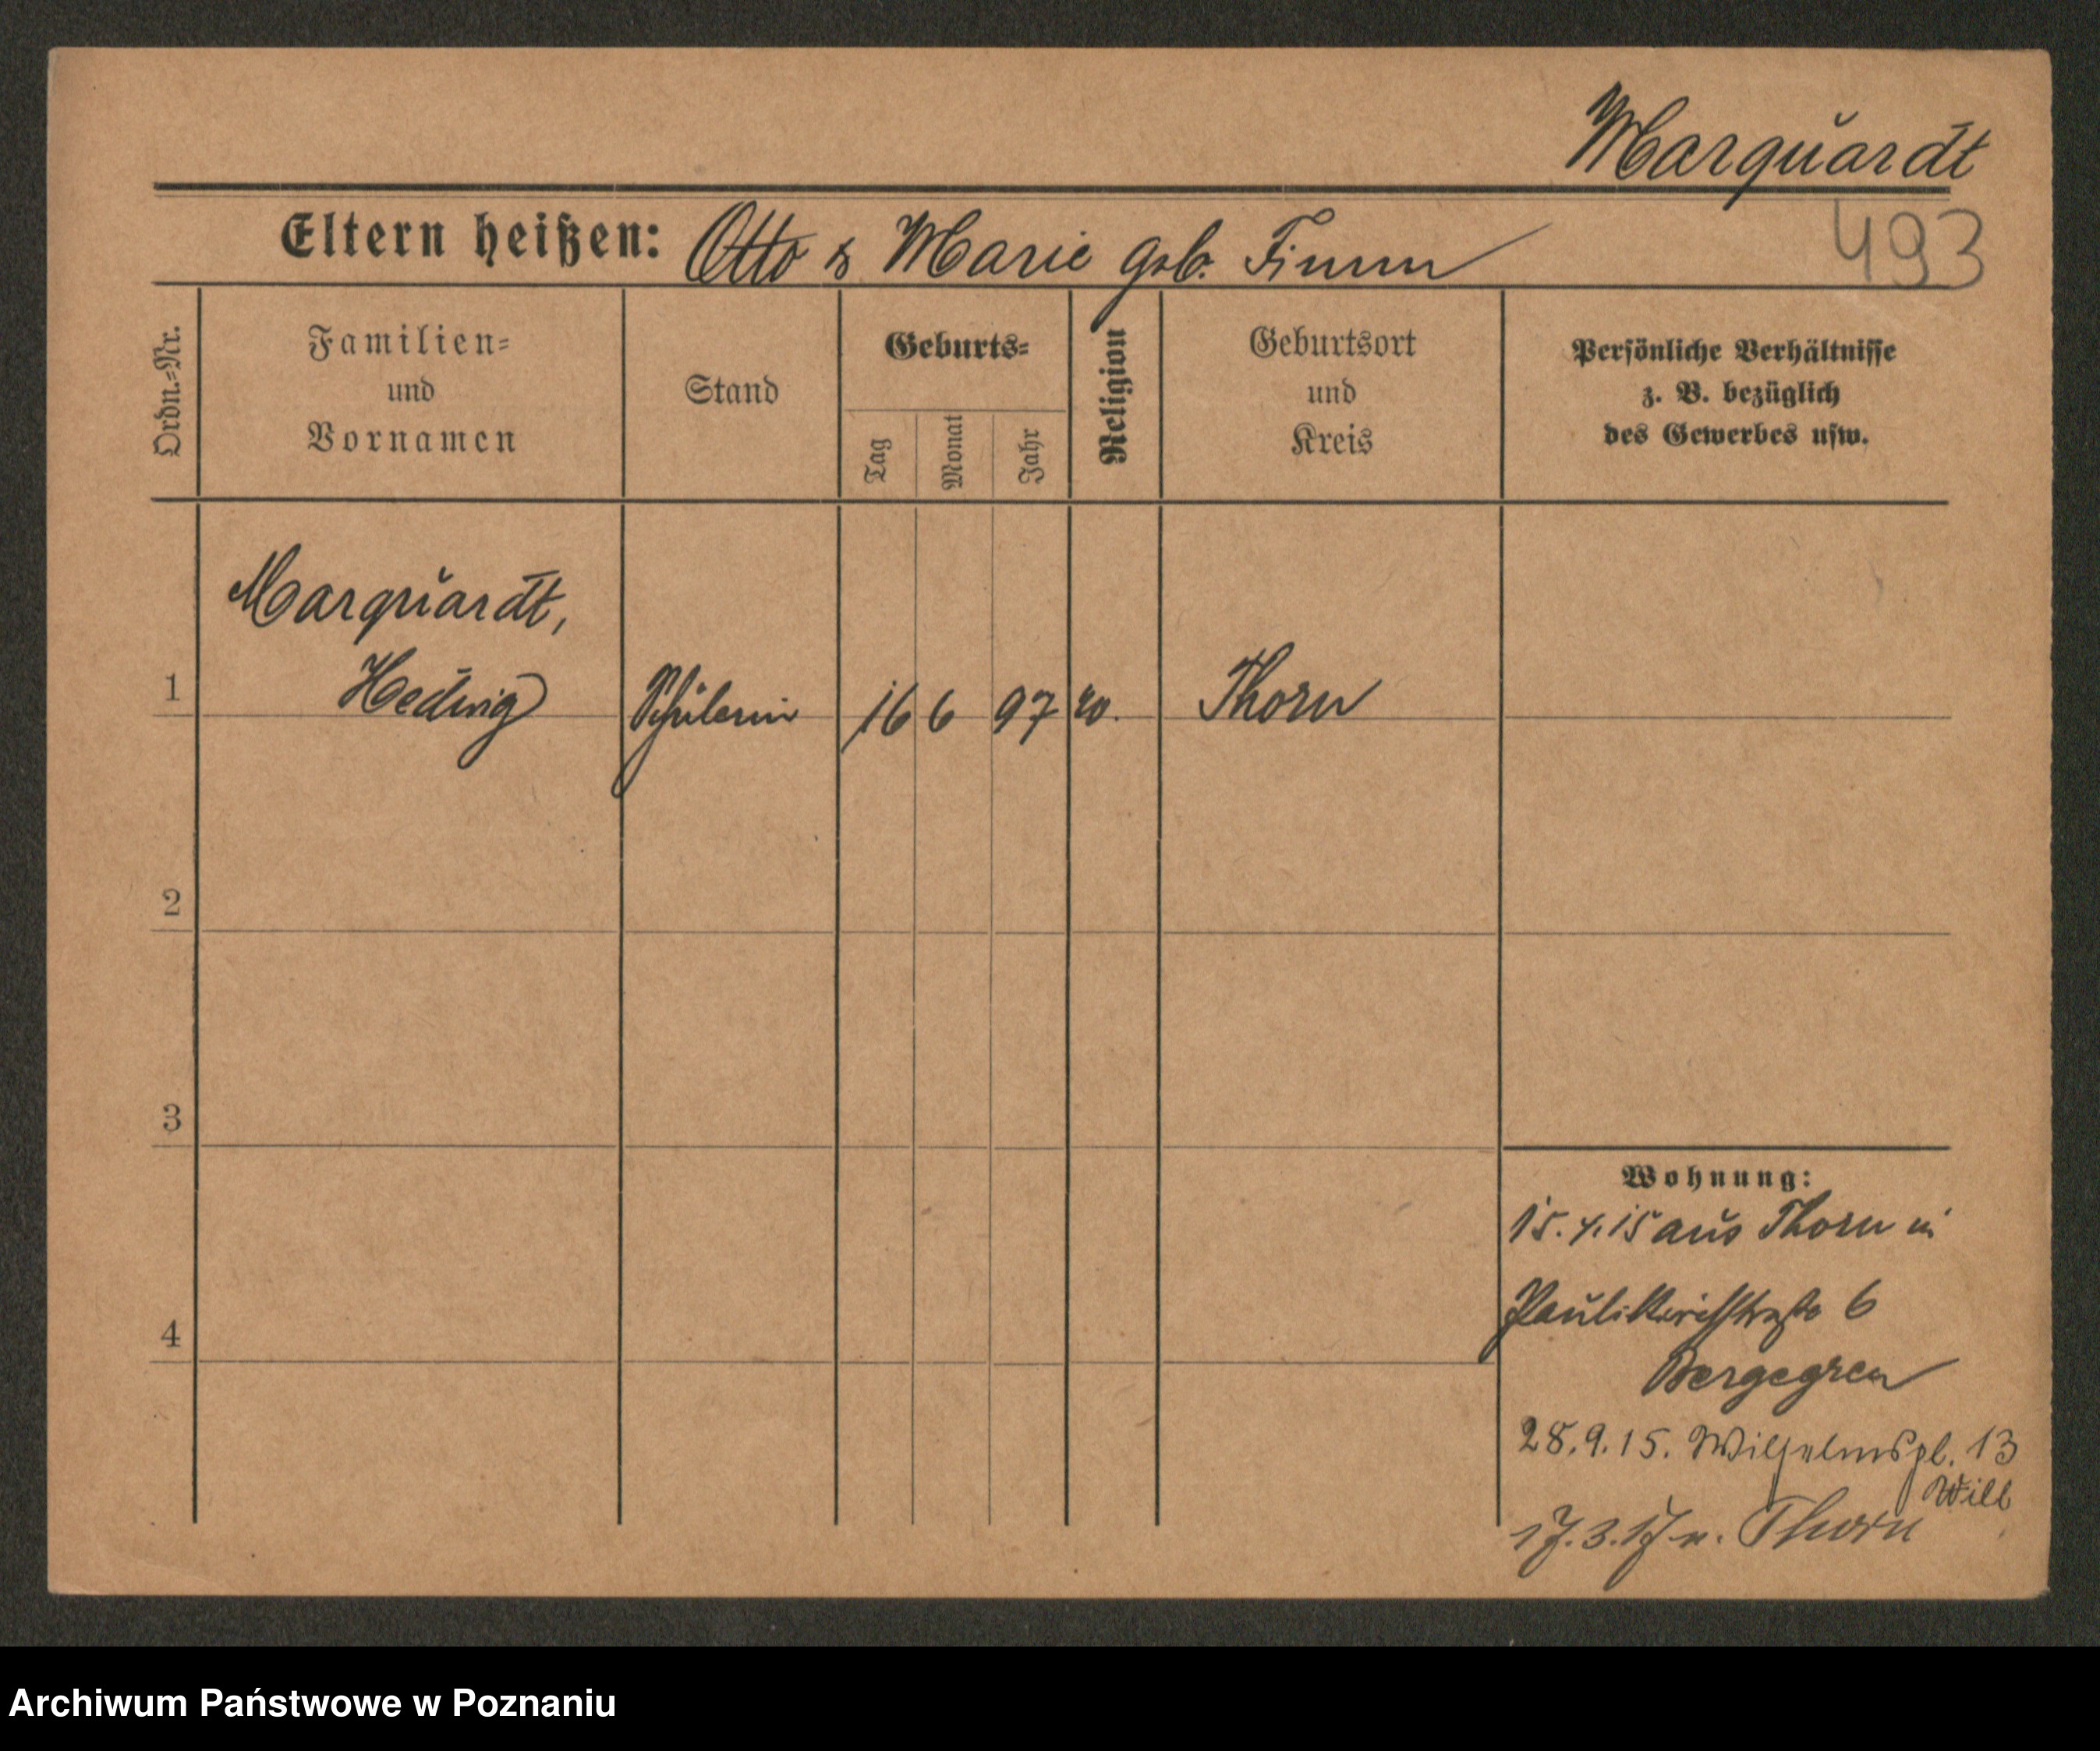 Marquardt
493
Eltern heißen: Otto & Marie geb. Fimm
Ordn.-Nr.
Familien-
und
Vornamen
Stand
Geburts-
Tag
Monat
Jahr
Religion
Geburtsort
und
Kreis
Persönliche Verhältnisse
z. B. bezüglich
des Gewerbes usw.
Marquardt,
1 Hedwig Schülerin 16 6 97 ev. Thorn
2
3
4
Wohnung:
15.4.15 aus Thorn in
Paulikirchstraße 6
Bergegren
28.9.15. Wilhelmspl. 13
Will
17.3.17 n. Thorn
Archiwum Państwowe w Poznaniu